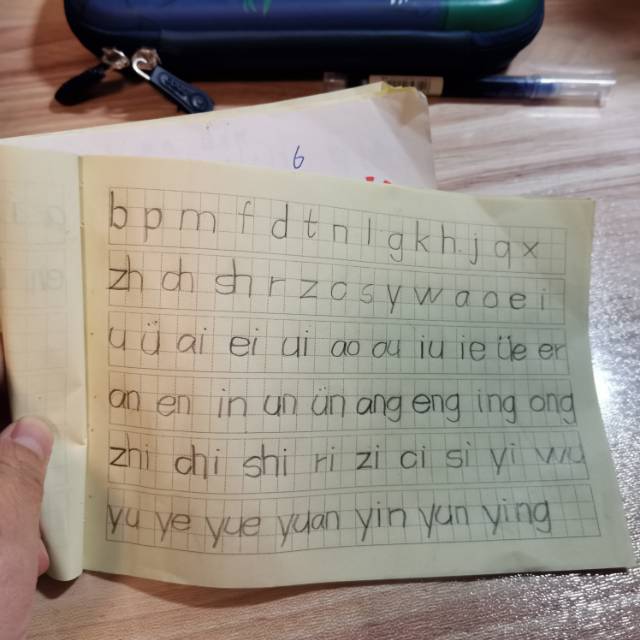 6
b p m f d t n l g k h j q x
zh ch sh r z c s y w a o e i
u ü ai ei ui ao ou iu ie üe er
an en in un ün ang eng ing ong
zhi chi shi ri zi ci si yi wu
yu ye yue yuan yin yun ying